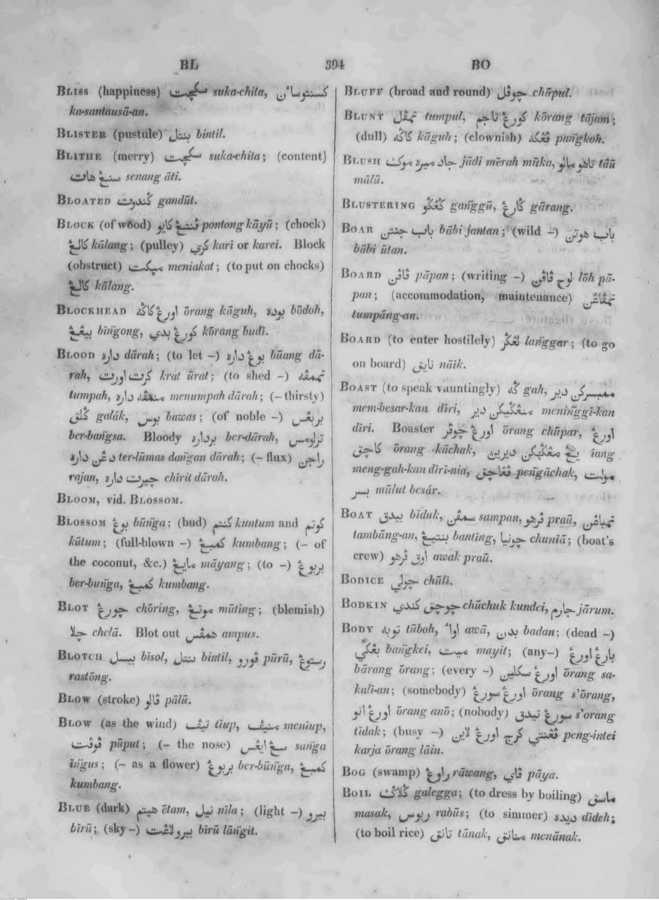 BL 394 BO
BLISS (happiness) سكچيت suka-chita, كسنتوسائن
ka-santausā-an.
BLISTER (pustule) بنتل bintil.
BLITHE (merry) سكچيت suka-chita; (content)
سنڠ هات senang āti.
BLOATED گندوت gandūt.
BLOCK (of wood) ڤنتڠ كايو pontong kāyū; (chock)
كالڠ kālang; (pulley) كري kari or karei. Block
(obstruct) ميكت meniakat; (to put on chocks)
كالڠ kālang.
BLOCKHEAD اورڠ كاڬه ōrang kāguh, بوده bōdoh,
بيڠڠ bīngong, كورڠ بدي kōrang budī.
BLOOD داره dārah; (to let –) بوڠ داره būang dā-
rah, كرت اورت krat ūrat; (to shed –) تمڤه
tumpah, منمڤه داره menumpah dārah; (– thirsty)
گلق galak, بوس bawas; (of noble –) بربڠس
ber-bangsa. Bloody برداره ber-dārah, ترلومس
دڠن داره ter-lūmas dangan dārah; (– flux) راجن
rajan, چيرت داره chirit dārah.
BLOOM, vid. BLOSSOM.
BLOSSOM بوڠ būnga; (bud) كنتم kuntum and كوتم
kūtum; (full-blown –) كمبڠ kumbang; (– of
the coconut, &c.) مايڠ māyang; (to –) بربوڠ
ber-bunga, كمبڠ kumbang.
BLOT چورڠ chōring, موتڠ mūting; (blemish)
چلا chelā. Blot out همڤس ampus.
BLOTCH بيسل bisol, بنتل bintil, ڤورو pūrū, رستوڠ
rastōng.
BLOW (stroke) ڤالو pālū.
BLOW (as the wind) تيڤ tiup, منيڤ meniup,
ڤوڤت pūput; (– the nose) سڠ ايڠس sanga
ingus; (– as a flower) بربوڠ ber-būnga, كمبڠ
kumbang.
BLUE (dark) هيتم ētam, نيل nīla; (light –) بيرو
bīrū; (sky –) بيرو لاڠت bīrū lāngit.
BLUFF (broad and round) چوڤل chūpul.
BLUNT تمڤل tumpul, كورڠ تاجم kōrang tājam;
(dull) كاڬه kāguh; (clownish) ڤڠكه pangkoh.
BLUSH جاد ميره موك jādi mērah mūka, تاهو مالو tāū
mālū.
BLUSTERING گڠگو ganggū, گارڠ gārang.
BOAR بابي جنتن bābi jantan; (wild –) باب هوتن
bābi ūtan.
BOARD ڤاڤن pāpan; (writing –) لوح ڤاڤن lōh pā-
pan; (accommodation, maintenance) تمڤاڠن
tumpāng-an.
BOARD (to enter hostilely) لڠگر langgar; (to go
on board) نايق nāik.
BOAST (to speak vauntingly) گه gah, ممبسركن دير
mem-besar-kan diri, منڠگيكن دير meninggi-kan
diri. Boaster اورڠ چوڤر ōrang chūpar, اورڠ
كاچق ōrang kāchak, يڠ مڠگهكن ديرين iang
meng-gah-kan diri-nia, ڤڠاچق pengāchak, مولت
بسر mūlut besār.
BOAT بيدق biduk, سمڤن sampan, ڤرهو praū, تمباڠن
tambāng-an, بنتيڠ banting, چونيا chuniā; (boat's
crew) اوق ڤرهو awak praū.
BODICE چولي chūli.
BODKIN چوچق كندي chūchuk kundei, جارم jārum.
BODY توبه tūboh, اوا awā, بدن badan; (dead –)
بڠكي bangkei, ميت mayit; (any –) بارڠ اورڠ
bārang ōrang; (every –) اورڠ سكلين ōrang sa-
kali-an; (somebody) اورڠ سورڠ ōrang s'ōrang,
اورڠ انو ōrang anō; (nobody) سورڠ تيدق s'orang
tīdak; (busy –) ڤڠنتي كرج اورڠ لاين peng-intei
karja ōrang lāin.
BOG (swamp) راوڠ rāwang, ڤاي pāya.
BOIL گلاڬ galegga; (to dress by boiling) ماسق
masak, ربوس rabūs; (to simmer) ديده dīdeh;
(to boil rice) تانق tānak, منانق menānak.